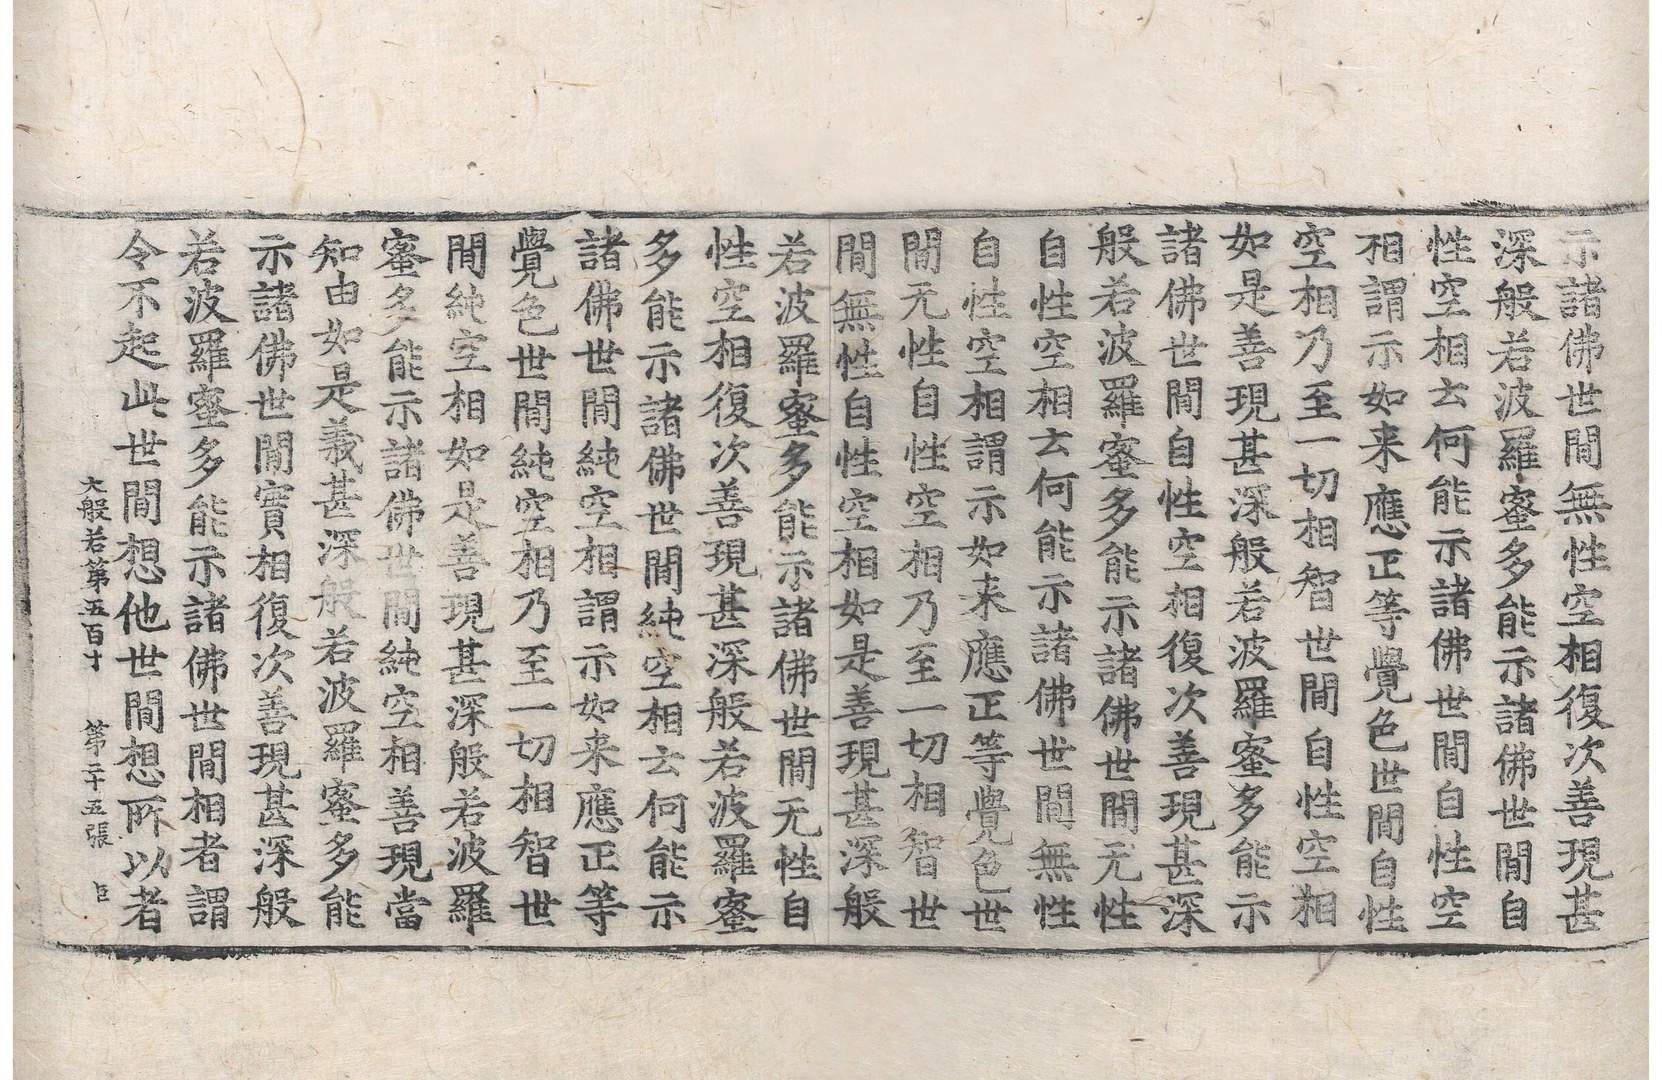 示諸佛世間無性空相復次善現甚
深般若波羅蜜多能示諸佛世間自
性空相云何能示諸佛世間自性空
相謂示如来應正等覺色世間自性
空相乃至一切相智世間自性空相
如是善現甚深般若波羅蜜多能示
諸佛世間自性空相復次善現甚深
般若波羅蜜多能示諸佛世間无性
自性空相云何能示諸佛世間無性
自性空相謂示如来應正等覺色世
間无性自性空相乃至一切相智世
間無性自性空相如是善現甚深般
若波羅蜜多能示諸佛世間无性自
性空相復次善現甚深般若波羅蜜
多能示諸佛世間純空相云何能示
諸佛世間純空相謂示如来應正等
覺色世間純空相乃至一切相智世
間純空相如是善現甚深般若波羅
蜜多能示諸佛世間純空相善現當
知由如是義甚深般若波羅蜜多能
示諸佛世間實相復次善現甚深般
若波羅蜜多能示諸佛世間相者謂
令不起此世間想他世間想所以者
大般若第五百十 第二十五張 臣